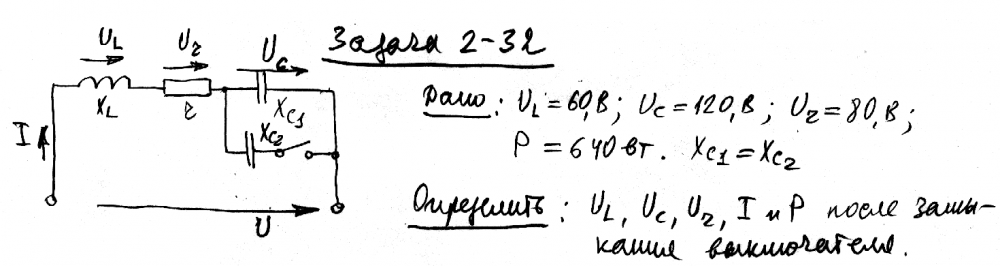 Задача 2-32
U_L U_r U_c
X_L r X_C1
X_C2
I
U
Дано: U_L = 60,В; U_c = 120,В; U_r = 80,В;
P = 640 вт. X_C1 = X_C2
Определить: U_L, U_c, U_r, I и P после замы-
кания выключателя.